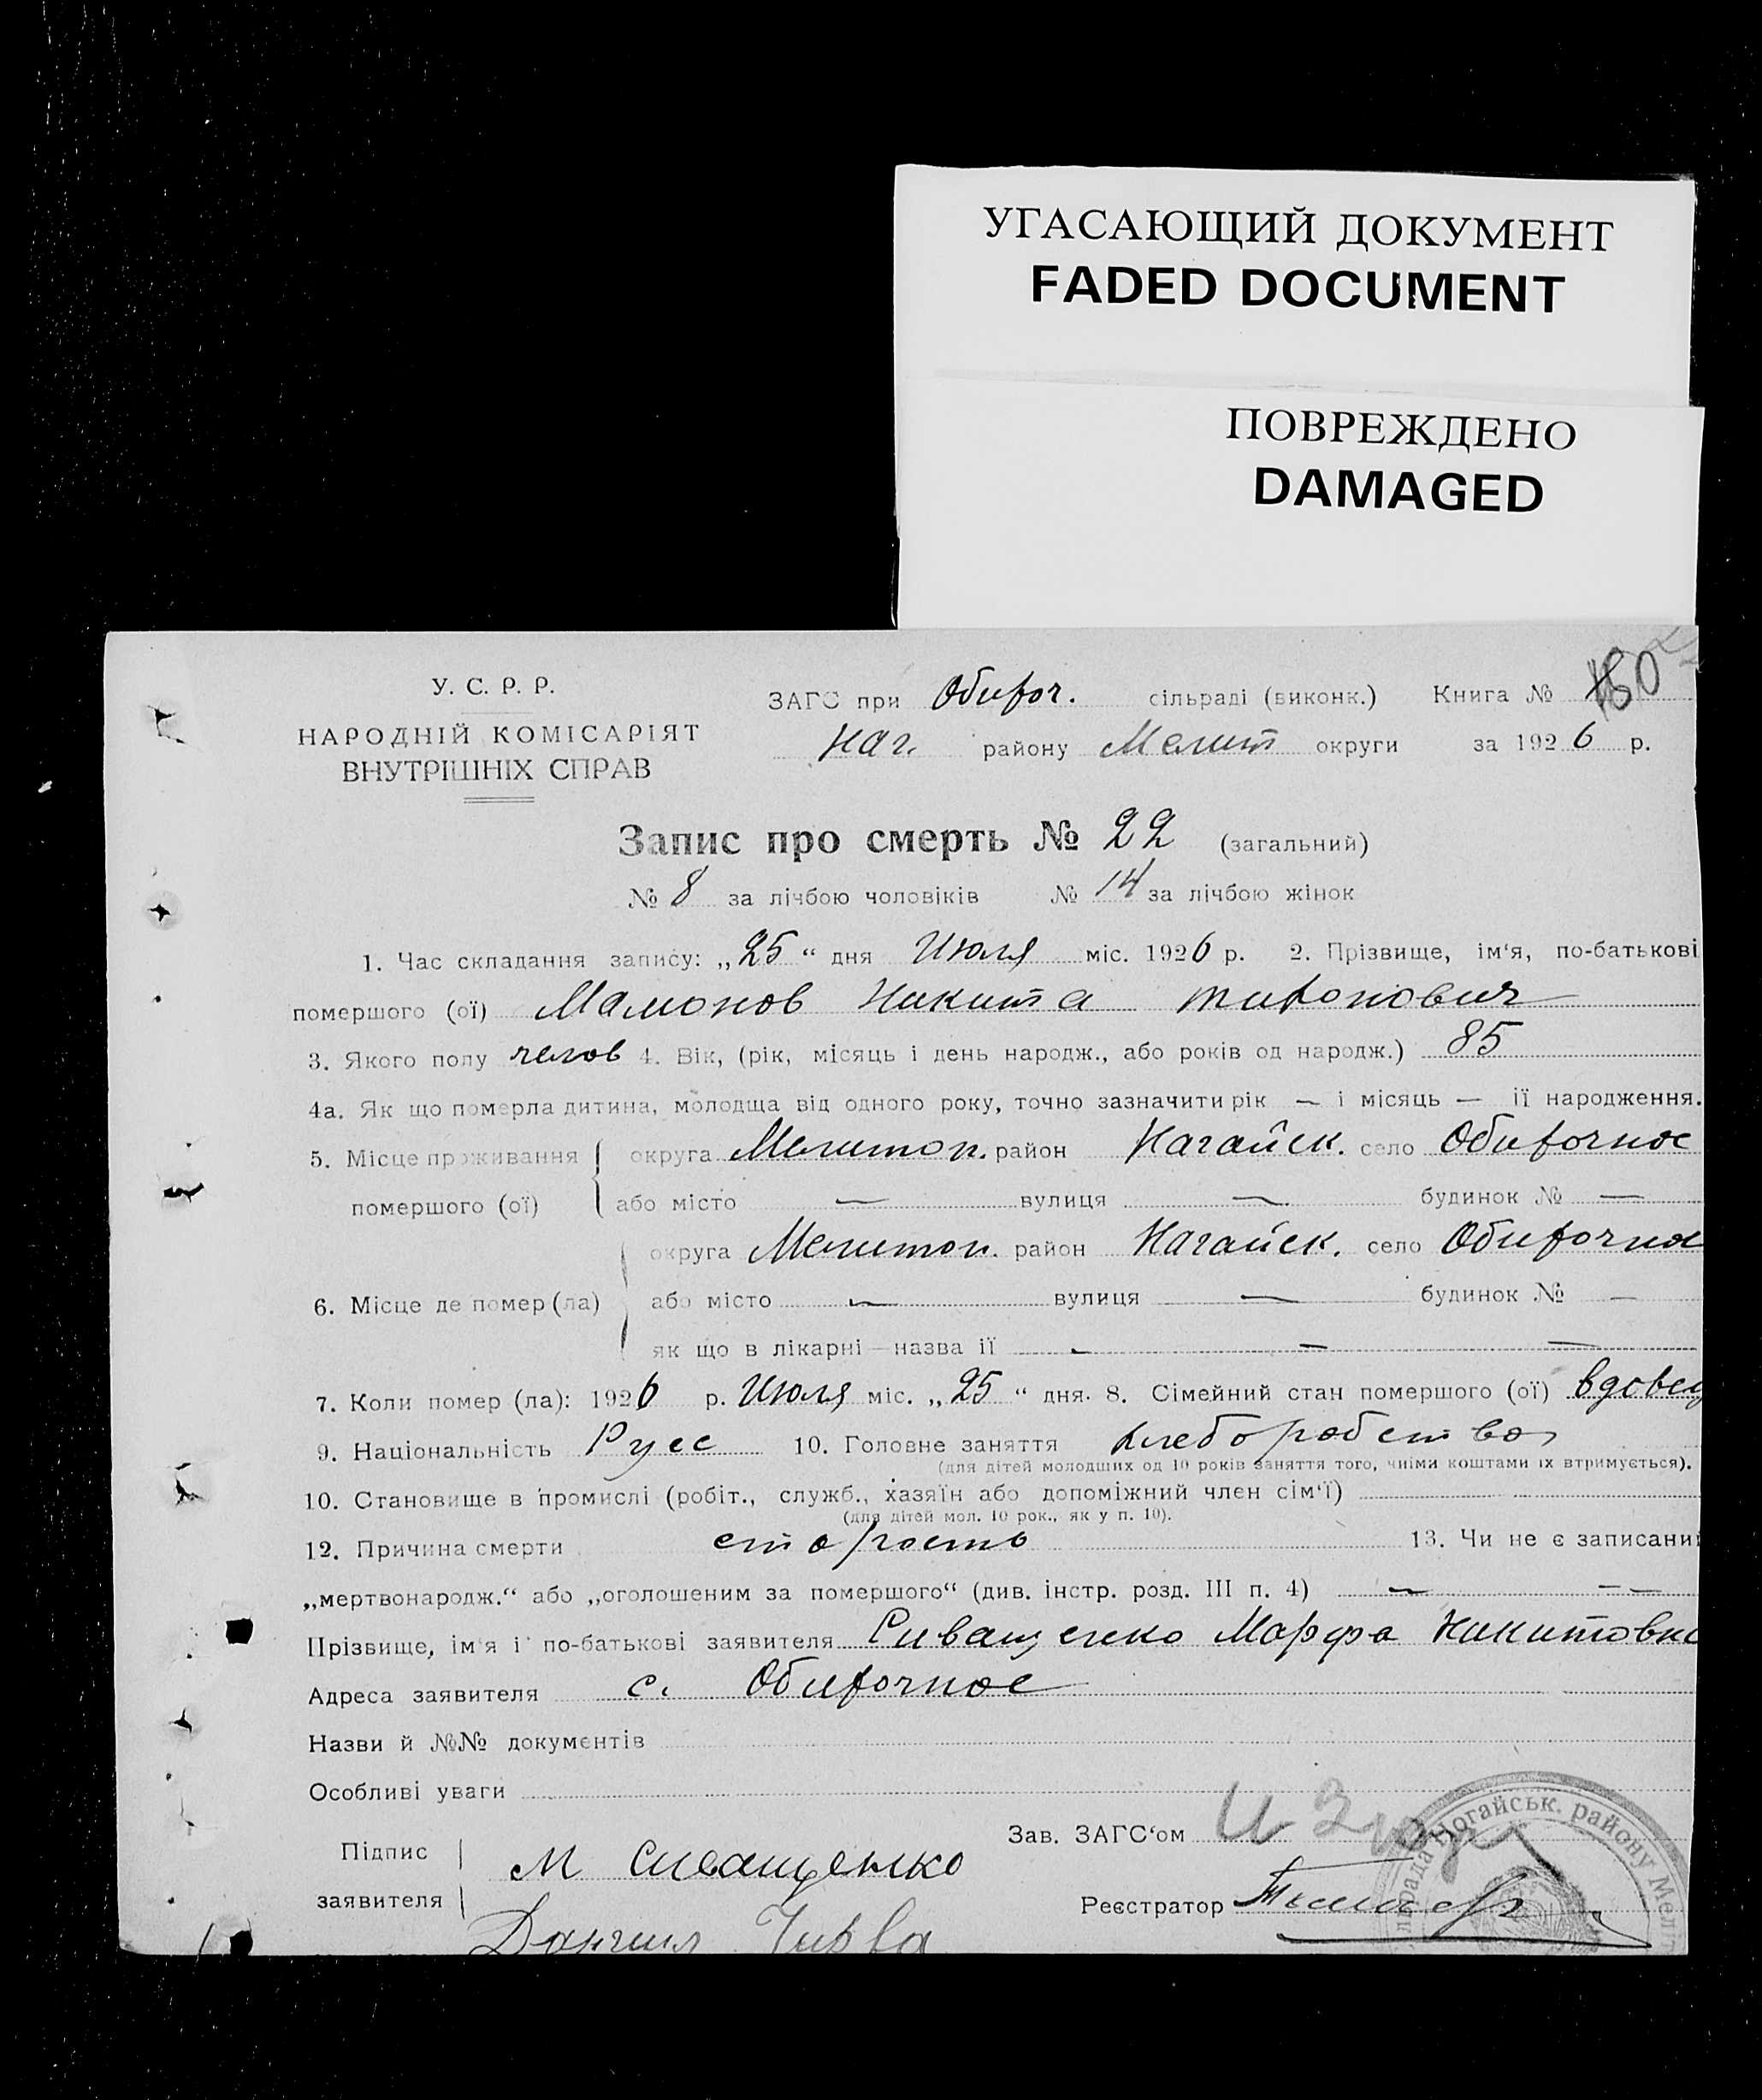 УГАСАЮЩИЙ ДОКУМЕНТ
FADED DOCUMENT
ПОВРЕЖДЕНО
DAMAGED
У. С. Р. Р.
НАРОДНІЙ КОМІСАРІЯТ
ВНУТРІШНІХ СПРАВ
ЗАГС при Обиточ. сільраді (виконк.) Книга №
Наг. району Мелит округи за 1926 р.
Запис про смерть № 22 (загальний)
№ 8 за лічбою чоловіків № 14 за лічбою жінок
1. Час складання запису: „25“ дня Июля міс. 1926 р. 2. Прізвище, ім‘я, по-батькові
помершого (ої) Мамонов Никита
3. Якого полу челов 4. Вік, (рік, місяць і день народж., або років од народж.) 85
4а. Як що померла дитина, молодща від одного року, точно зазначити рік — і місяць — її народження.
5. Місце проживання помершого (ої) округа Мелитоп. район Нагайск. село Обиточное
або місто — вулиця — будинок № —
6. Місце де помер (ла) округа Мелитоп. район Нагайск. село Обиточное
або місто — вулиця — будинок № —
як що в лікарні—назва її — — —
7. Коли помер (ла): 1926 р. Июля міс. „25“ дня. 8. Сімейний стан помершого (ої) вдовец
9. Національність Русс 10. Головне заняття хлеборобство
(для дітей молодших од 10 років заняття того, чиїми коштами їх втримується).
10. Становище в промислі (робіт., служб., хазяїн або допоміжний член сім‘ї)
(для дітей мол. 10 рок., як у п. 10).
12. Причина смерти старость 13. Чи не є записаний
„мертвонародж.“ або „оголошеним за помершого“ (див. інстр. розд. III п. 4) — — —
Прізвище, ім‘я і по-батькові заявителя Сиващенко Марфа Никитовна
Адреса заявителя с. Обиточное
Назви й №№ документів
Особливі уваги
Підпис заявителя М Сиващенко
Зав. ЗАГС‘ом
Реєстратор
Ногайськ. району Меліт